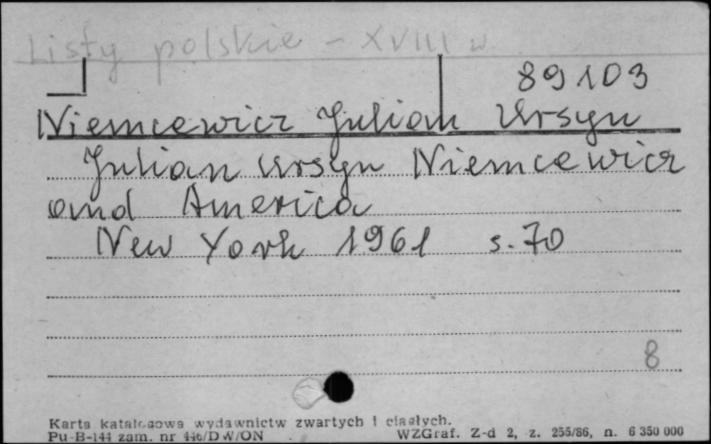 Listy polskie - XVIII w
89103
Niemcewicz Julian Ursyn
Julian Ursyn Niemcewicz
and America
New York 1961 s. 70
8
Karta katalogowa wydawnictw zwartych i ciągłych.
Pu-B-144 zam. nr 446/DW/ON WZGraf. Z-d 2, z. 255/86, n. 6 350 000